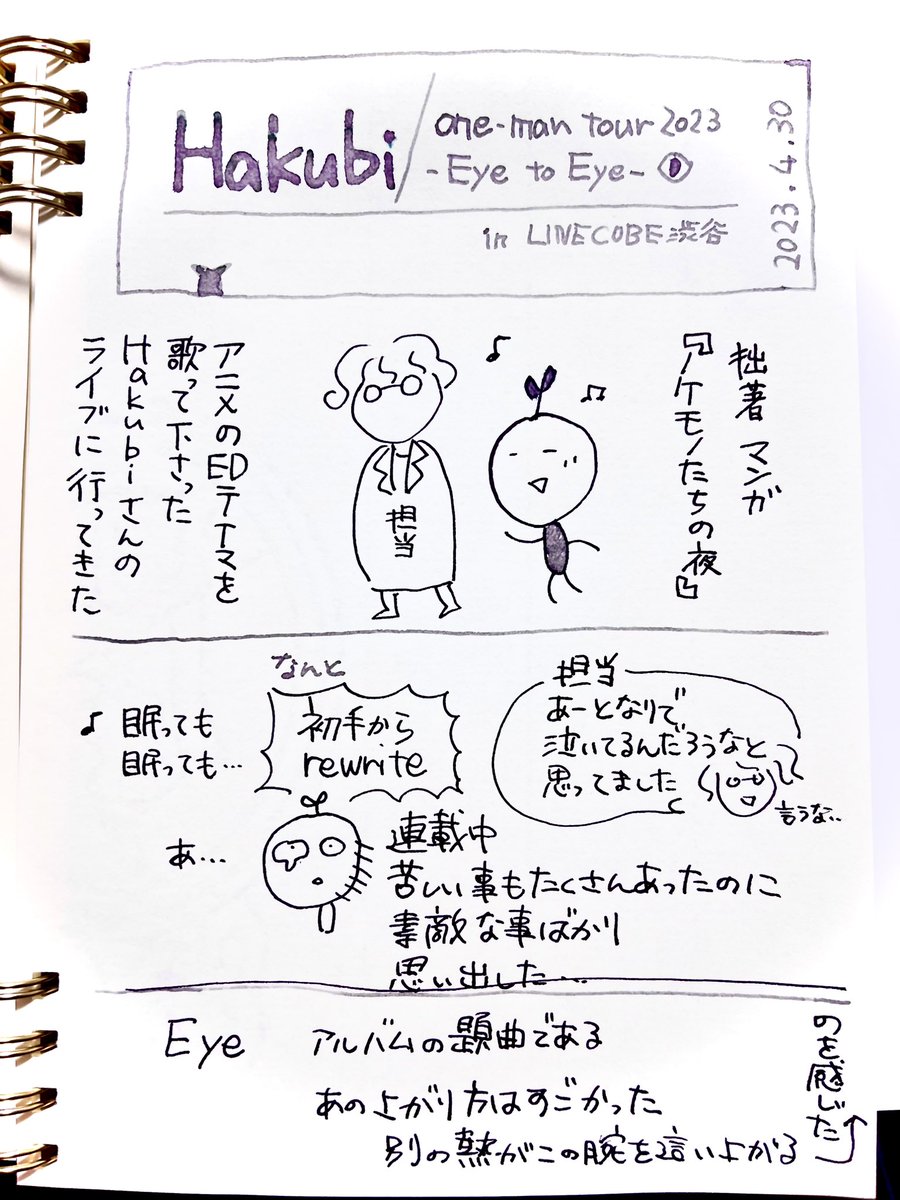 Hakubi/
one-man tour 2023
-Eye to Eye-
in LINECOBE渋谷
2023.4.30
拙著 マンガ
『ノケモノたちの夜』
担当
アニメのEDテーマを
歌って下さった
Hakubiさんの
ライブに行ってきた
♪ 眠っても
眠っても…
なんと
初手から
rewrite
担当
あーとなりで
泣いてるんだろうなと
思ってました
言うな…
あ…
連載中
苦しい事もたくさんあったのに
素敵な事ばかり
思い出した…
Eye
アルバムの題曲である
あの上がり方はすごかった
別の熱がこの腕を這いよがる
のを感じた